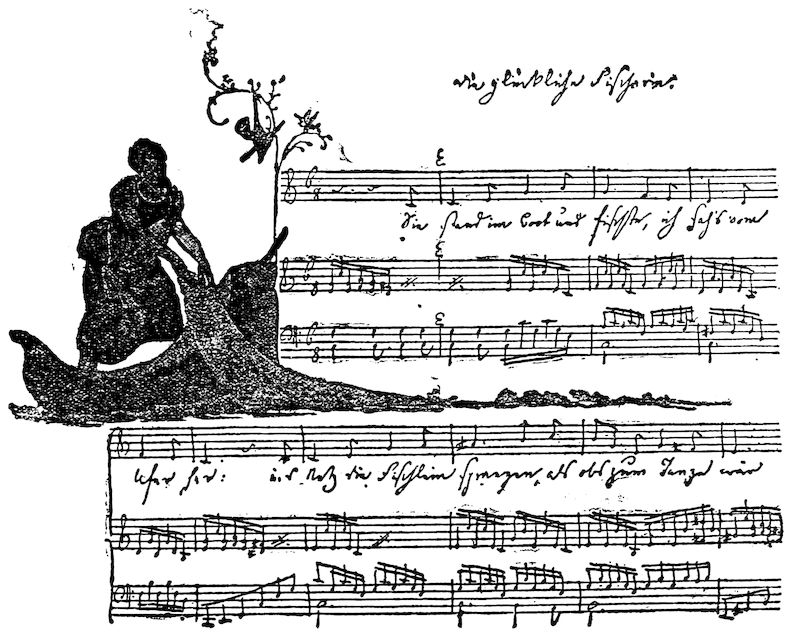 Die glückliche Fischerin.
Sie stand im Boot und fischte, ich sah's vom
Ufer her: ins Netz die Fischlein sprangen, als obs zum Tanze wär